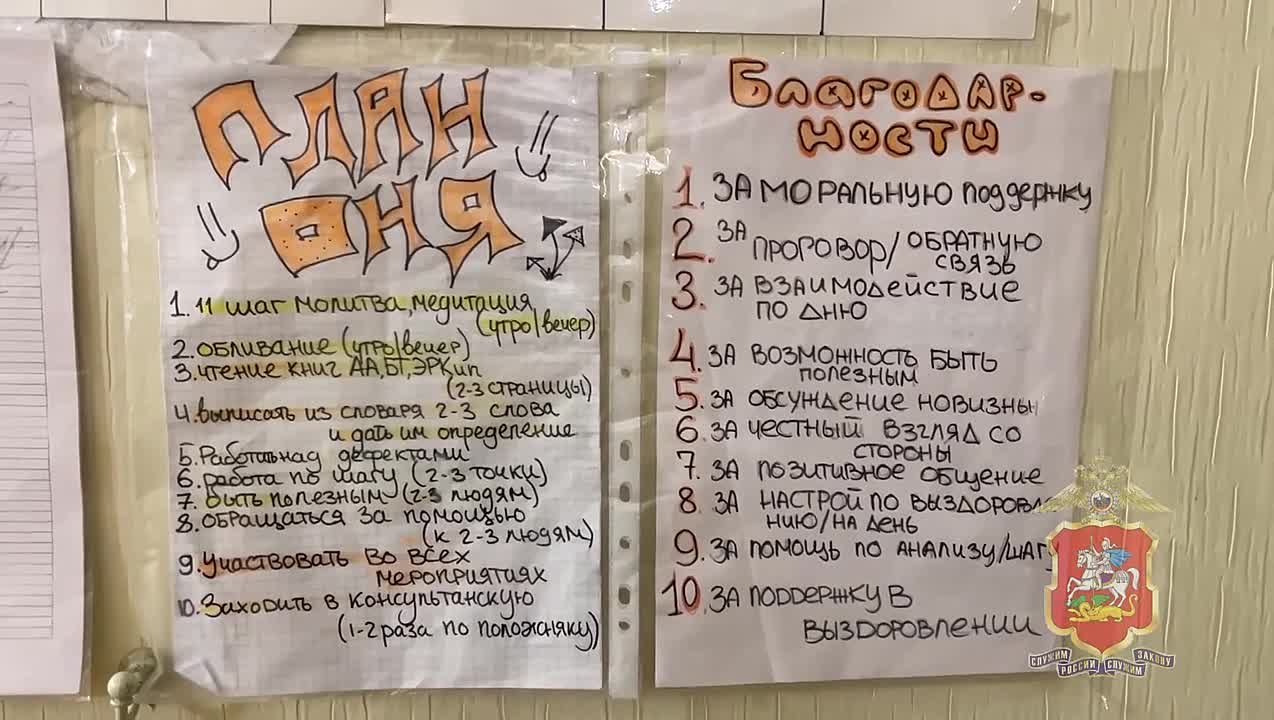 ПЛАН
ДНЯ
1. 11 шаг молитва, медитация
(утро/вечер)
2. обливание (утро/вечер)
3. чтение книг АА, БТ, ЭРКип
(2-3 страницы)
4. выписать из словаря 2-3 слова
и дать им определение
5. Работать над дефектами
6. работа по шагу (2-3 точки)
7. быть полезным (2-3 людям)
8. обращаться за помощью
(к 2-3 людям)
9. Участвовать во всех
мероприятиях
10. Заходить в консультанскую
(1-2 раза по положняку)
БЛАГОДАР-
НОСТИ
1. ЗА МОРАЛЬНУЮ поддержку
2. ЗА ПРОГОВОР/ОБРАТНУЮ
СВЯЗЬ
3. ЗА ВЗАИМОДЕЙСТВИЕ
ПО ДНЮ
4. ЗА ВОЗМОЖНОСТЬ БЫТЬ
ПОЛЕЗНЫМ
5. ЗА ОБСУЖДЕНИЕ НОВИЗНЫ
6. ЗА ЧЕСТНЫЙ ВЗГЛЯД СО
СТОРОНЫ
7. ЗА ПОЗИТИВНОЕ ОБЩЕНИЕ
8. ЗА НАСТРОЙ ПО ВЫЗДОРОВЛ
НИЮ/НА ДЕНЬ
9. ЗА ПОМОЩЬ ПО АНАЛИЗУ/ШАГУ
10. ЗА ПОДДЕРЖКУ В
ВЫЗДОРОВЛЕНИИ
СЛУЖИМ РОССИИ СЛУЖИМ ЗАКОНУ